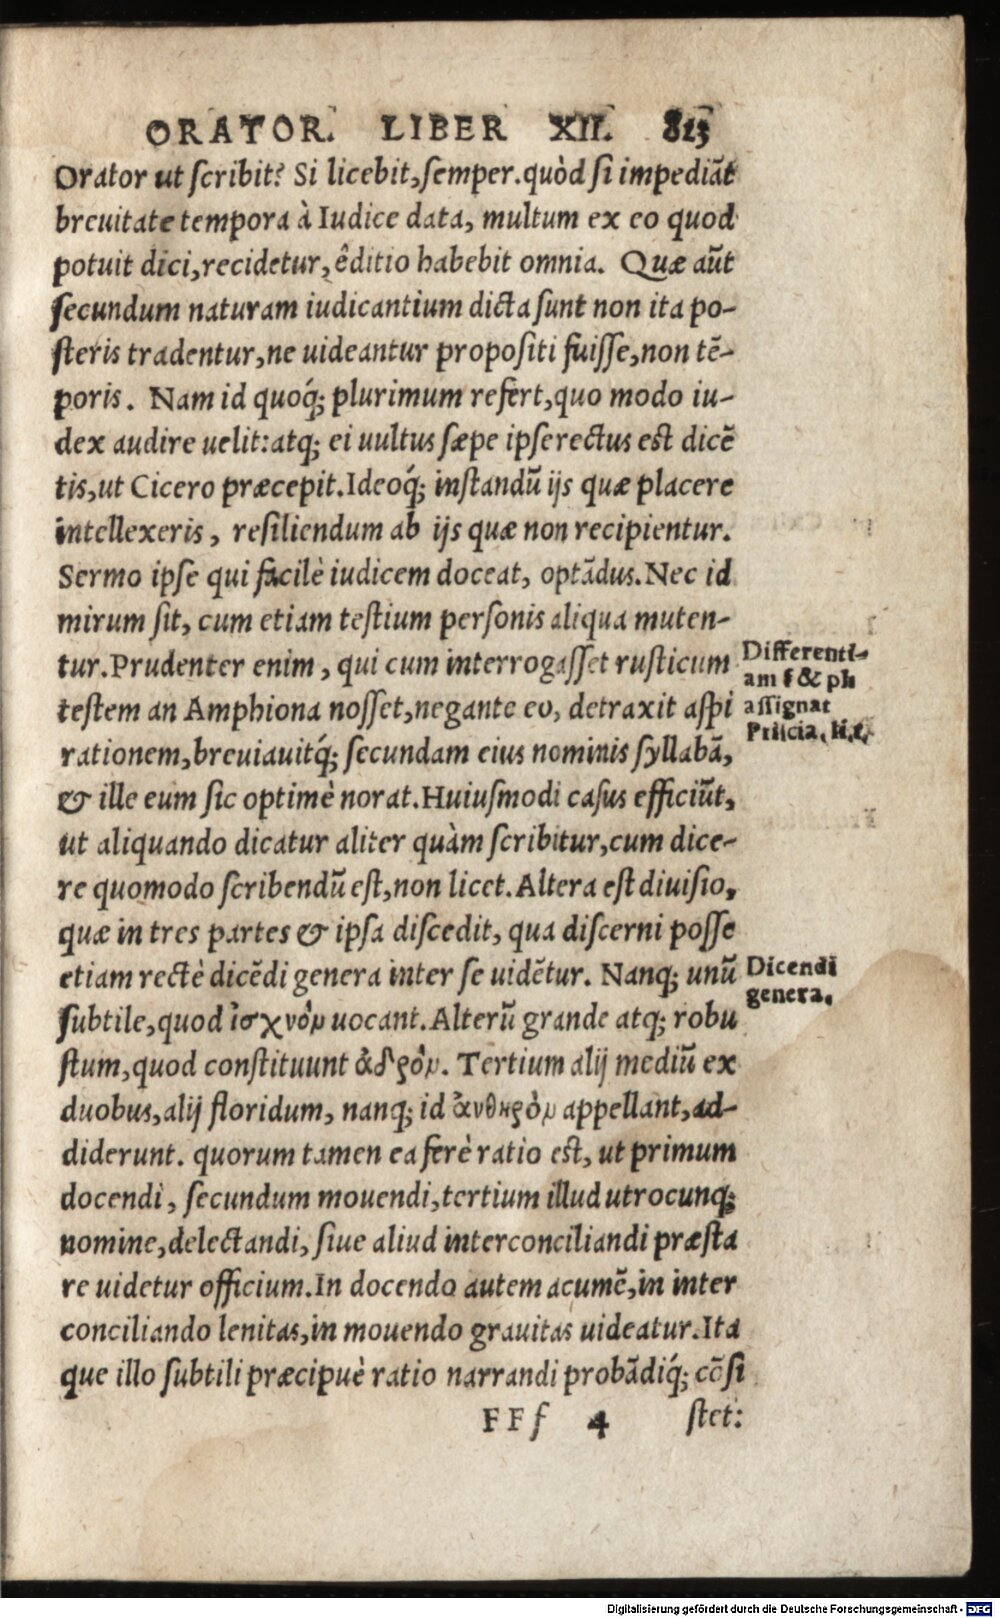 ORATOR. LIBER XII. 813
Orator ut ſcribit? Si licebit, ſemper. quòd ſi impediãt
breuitate tempora à Iudice data, multum ex eo quod
potuit dici, recidetur, êditio habebit omnia. Quæ aũt
ſecundum naturam iudicantium dicta ſunt non ita po-
ſteris tradentur, ne uideantur propoſiti fuiſſe, non tẽ-
poris. Nam id quoq́; plurimum refert, quo modo iu-
dex audire uelit: atq; ei uultus ſæpe ipſe rectus eſt dicẽ
tis, ut Cicero præcepit. Ideoq́; inſtandũ ijs quæ placere
intellexeris, reſiliendum ab ijs quæ non recipientur.
Sermo ipſe qui facilè iudicem doceat, optãdus. Nec id
mirum ſit, cum etiam teſtium perſonis aliqua muten-
tur. Prudenter enim, qui cum interrogaſſet ruſticum
Differenti-
am f & ph
aſſignat
Priſcia. li.1.
teſtem an Amphiona noſſet, negante eo, detraxit aſpi
rationem, breuiauitq́; ſecundam eius nominis ſyllabã,
& ille eum ſic optimè norat. Huiuſmodi caſus efficiũt,
ut aliquando dicatur aliter quàm ſcribitur, cum dice-
re quomodo ſcribendũ eſt, non licet. Altera eſt diuiſio,
quæ in tres partes & ipſa diſcedit, qua diſcerni poſſe
etiam rectè dicẽdi genera inter ſe uidẽtur. Nanq; unũ
Dicendi
genera.
ſubtile, quod ἰσχνὸν uocant. Alterũ grande atq; robu
ſtum, quod conſtituunt ἁδρὸν. Tertium alij mediũ ex
duobus, alij floridum, nanq; id ἀνθηρὸν appellant, ad-
diderunt. quorum tamen ea ferè ratio eſt, ut primum
docendi, ſecundum mouendi, tertium illud utrocunq;
nomine, delectandi, ſiue aliud interconciliandi præſta
re uidetur officium. In docendo autem acumẽ, in inter
conciliando lenitas, in mouendo grauitas uideatur. Ita
que illo ſubtili præcipuè ratio narrandi probãdiq́; cõſi
FFf 4 ſtet:
Digitalisierung gefördert durch die Deutsche Forschungsgemeinschaft - DFG